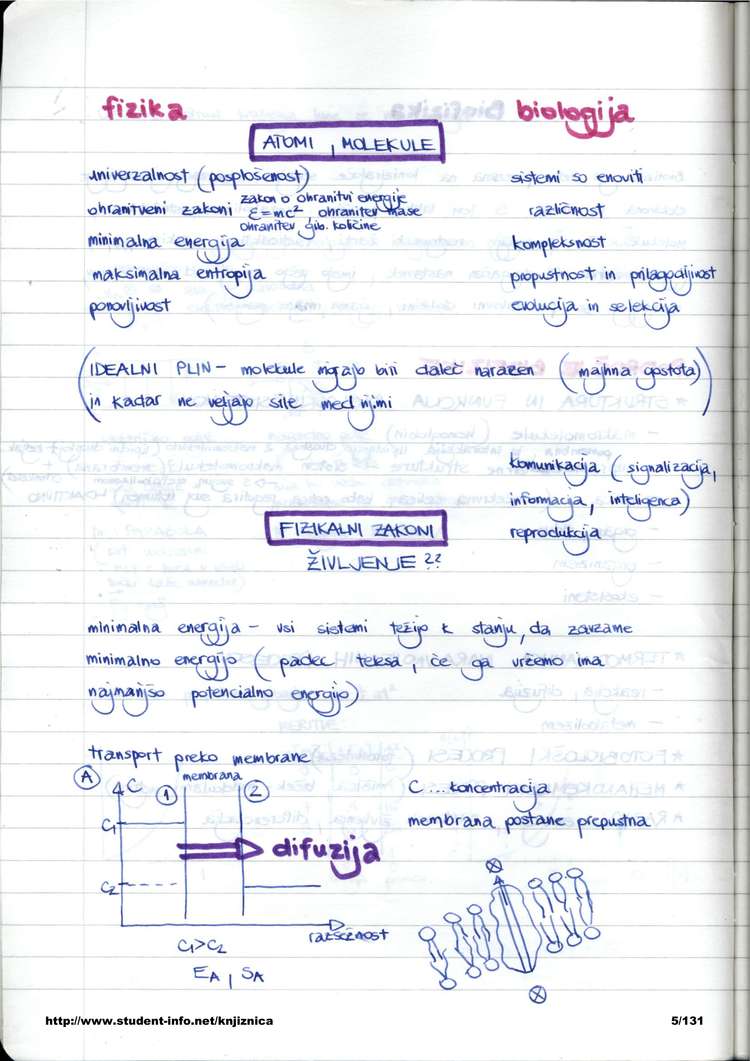 fizika biologija
ATOMI, MOLEKULE
univerzalnost (posplošenost) sistemi so enoviti
zakon o ohranitvi energije
ohranitveni zakoni E=mc² ohranitev mase različnost
ohranitev gib. količine
minimalna energija kompleksnost
maksimalna entropija propustnost in prilagodljivost
ponovljivost evolucija in selekcija
(IDEALNI PLIN – molekule morajo biti daleč narazen (majhna gostota)
in kadar ne veljajo sile med njimi)
komunikacija (signalizacija,
informacija, inteligenca)
FIZIKALNI ZAKONI reprodukcija
ŽIVLJENJE ??
minimalna energija – vsi sistemi težijo k stanju, da zavzame
minimalno energijo (padec telesa, če ga vržemo ima
najmanjšo potencialno energijo)
transport preko membrane
A C 1 membrana 2 C ... koncentracija
C₁ membrana postane prepustna
difuzija
C₂
razsežnost
C₁>C₂
EA, SA
http://www.student-info.net/knjiznica 5/131